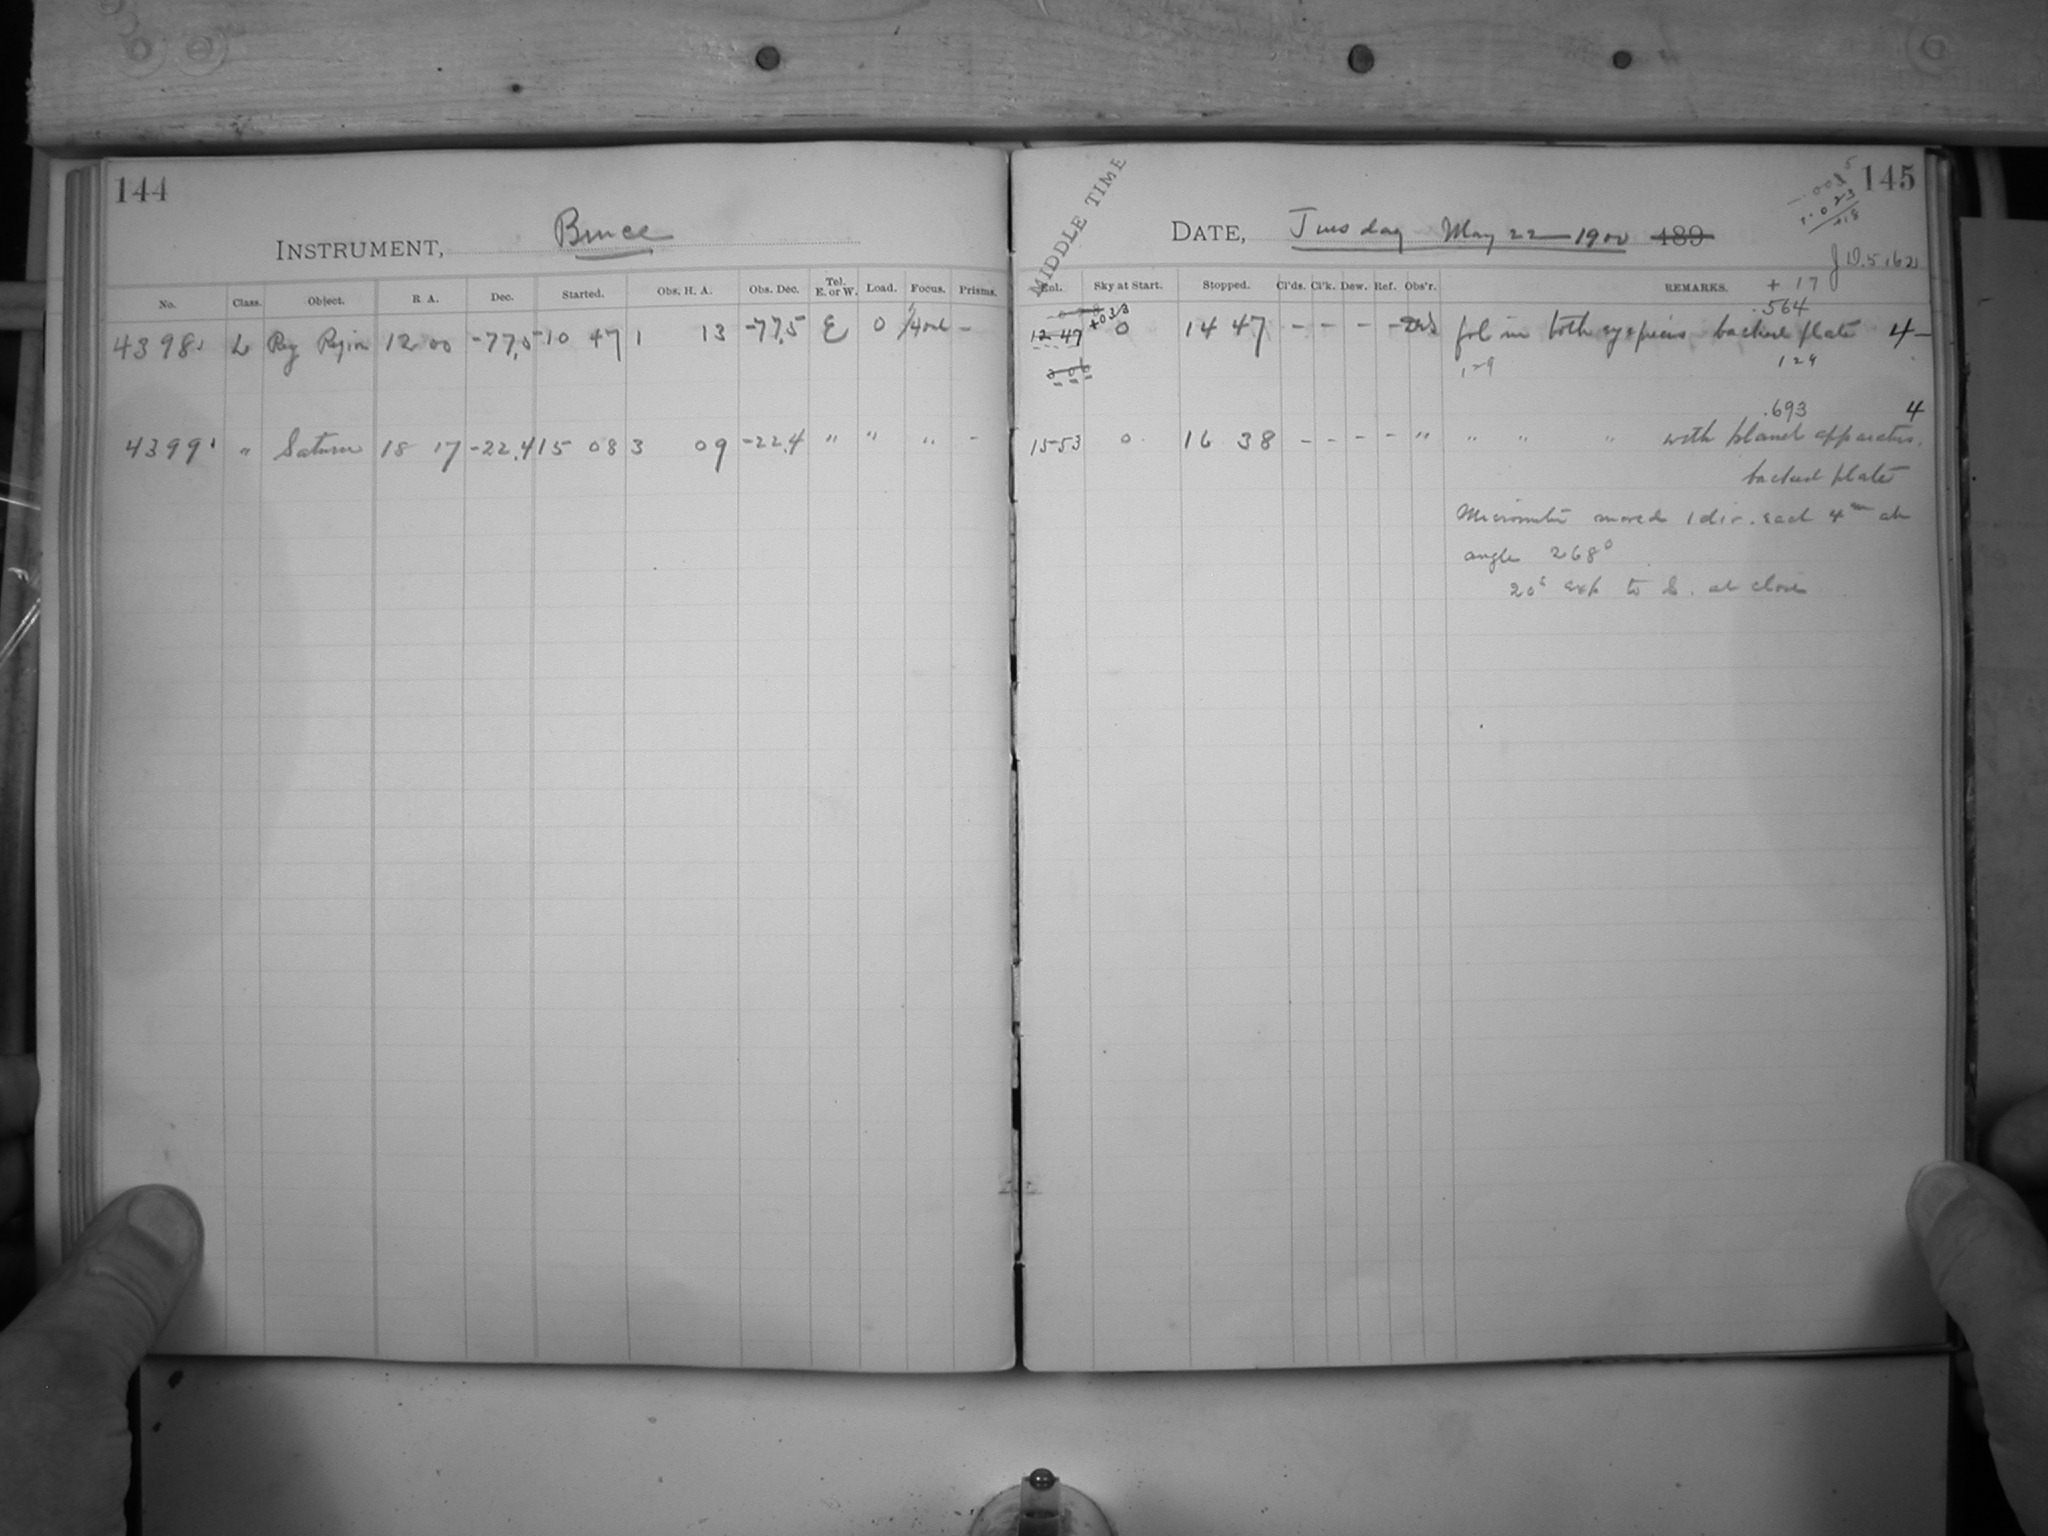 144
INSTRUMENT, Bruce
No. Class. Object. R A. Dec. Started. Obs. H. A. Obs. Dec. Tel. E. or W. Load. Focus. Prisms.
4398 L Reg Region 12 00 -77.5 10 47 1 13 -77.5 E 0 -
4399 " Saturn 18 17 -22.4 15 08 3 09 -22.4 " " " -
MIDDLE TIME
145
DATE, Tuesday May 22 1900 189
J.D. 5162
Enl. Sky at Start. Stopped. Cl'ds. Cl'k. Dew. Ref. Obs'r. REMARKS. + 17
.564
12 47 +033 0 14 47 - - - - fol in both eyepieces backed plate 4-
129 129
.693 4
15 53 0 16 38 - - - - " " " " with planet apparatus.
backed plate
Micrometer moved 1 div. each 4m at
angle 268°
20s exp to S. at close